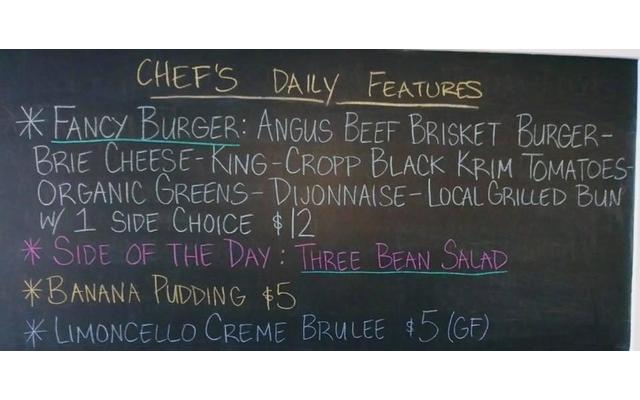 CHEF'S DAILY FEATURES
* FANCY BURGER: ANGUS BEEF BRISKET BURGER-
BRIE CHEESE-KING-CROPP BLACK KRIM TOMATOES-
ORGANIC GREENS-DIJONNAISE-LOCAL GRILLED BUN
W/ 1 SIDE CHOICE $12
* SIDE OF THE DAY: THREE BEAN SALAD
* BANANA PUDDING $5
* LIMONCELLO CREME BRULEE $5 (GF)